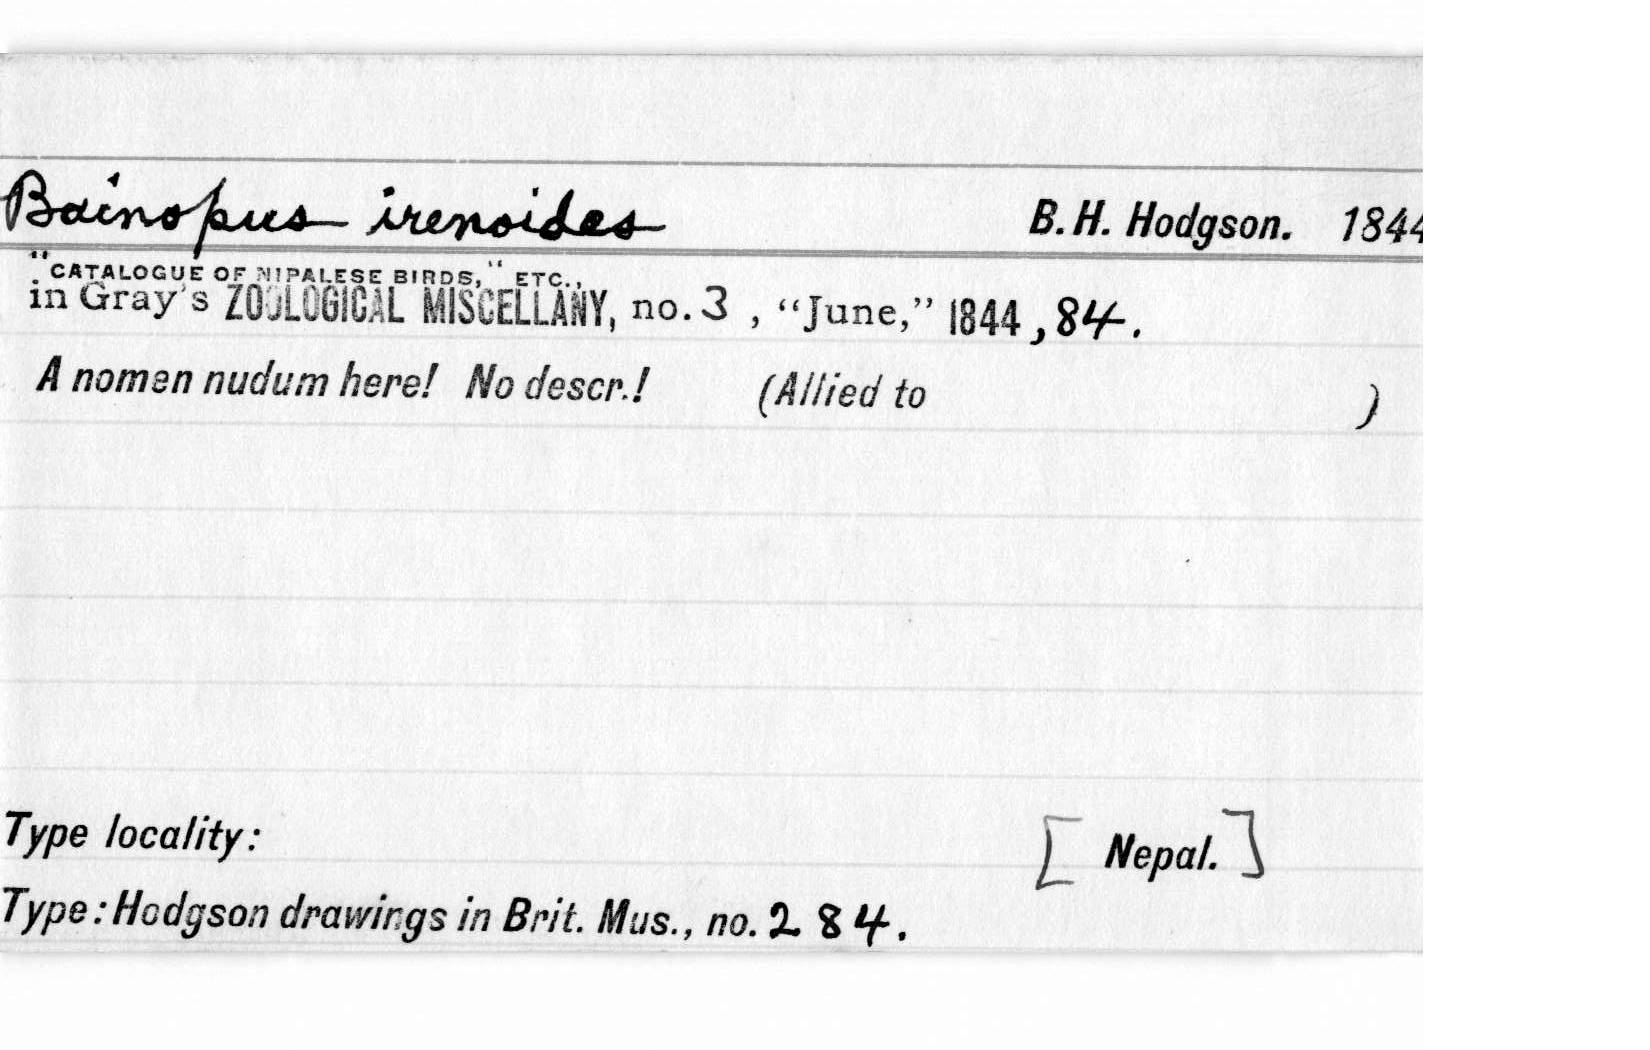 Bainopus irenoides B. H. Hodgson. 1844
"CATALOGUE OF NIPALESE BIRDS," ETC.,
in Gray's ZOOLOGICAL MISCELLANY, no. 3 , “June,” 1844 , 84.
A nomen nudum here! No descr.! (Allied to )
Type locality: [ Nepal. ]
Type: Hodgson drawings in Brit. Mus., no. 284.